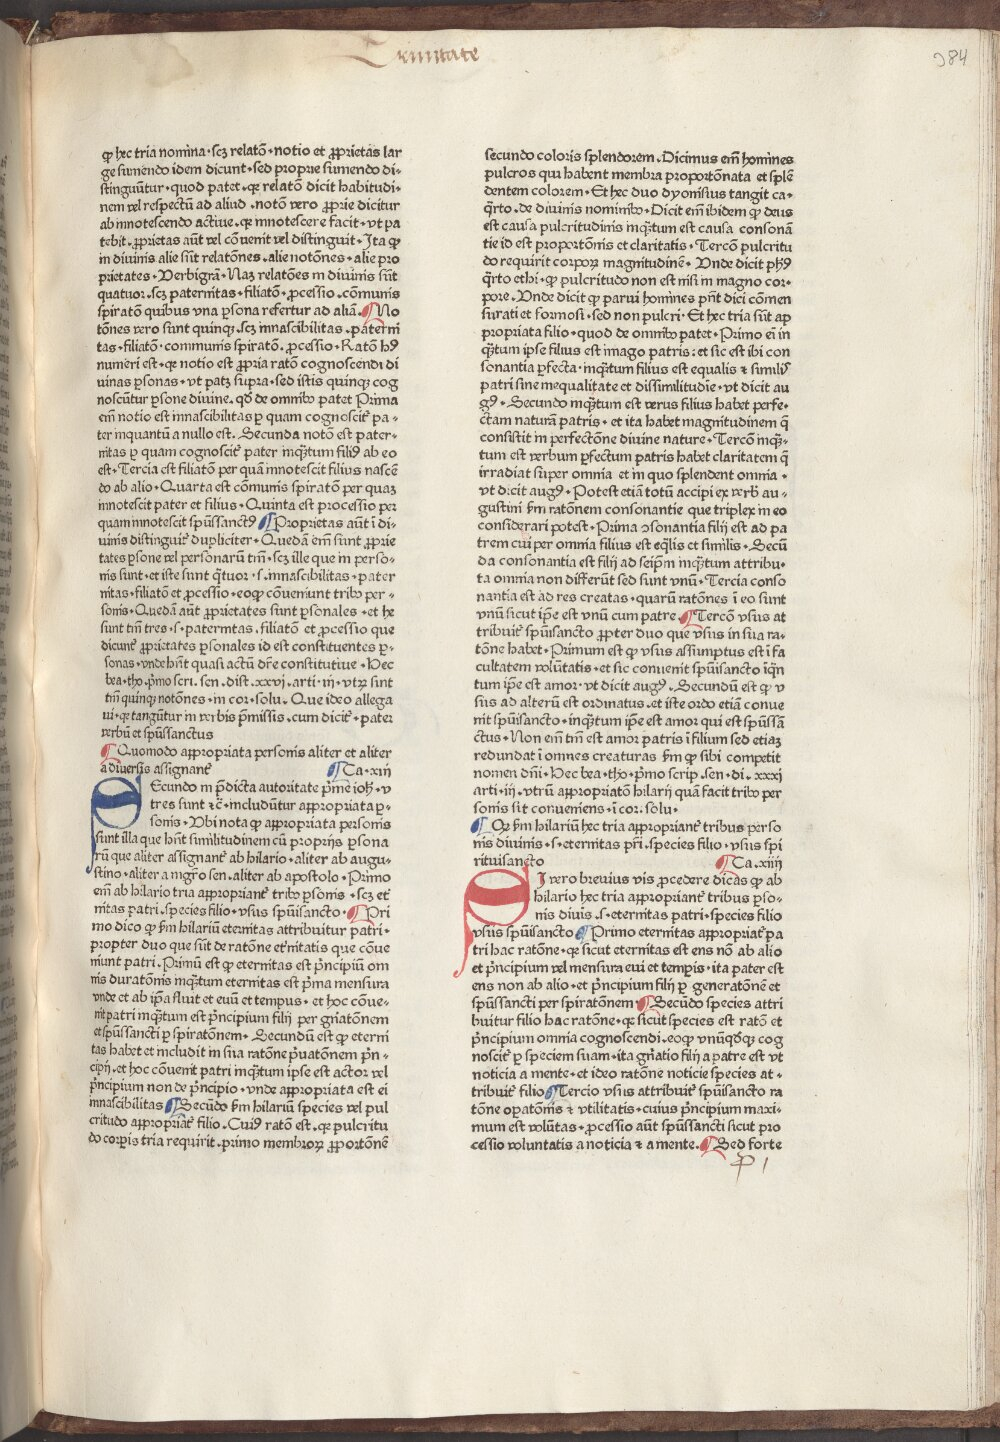 Trinitate
984
ꝙ hec tria nomina·scꝫ relatō·notio et ꝓprietas lar
ge sumendo idem dicunt·sed proprie sumendo di-
stinguūtur·quod patet·qꝛ relatō dicit habitudi-
nem vel respectū ad aliud·notō vero ꝓprie dicitur
ab innotescendo actiue·qꝛ innotescere facit·vt pa
tebit·ꝓprietas aūt vel cōuenit vel distinguit·Ita ꝙ
in diuinis alie sūt relatōnes·alie notōnes·alie pro
prietates·Verbigrā·Naꝫ relatōes in diuinis sūt
quatuor·scꝫ paternitas·filiatō·ꝓcessio·cōmunis
spiratō quibus vna ꝑsona refertur ad aliā·No
tōnes vero sunt quinqꝫ·scꝫ innascibilitas·paterni
tas·filiatō·communis spiratō·ꝓcessio·Ratō hꝰ
numeri est·qꝛ notio est ꝓpria ratō cognoscendi di
uinas ꝑsonas·vt patꝫ supra·sed istis quinqꝫ cog
noscūtur ꝑsone diuine·qd̄ de omnibꝰ patet Prima
em̄ notio est innascibilitas ꝑ quam cognoscit᷑ pa-
ter inquantū a nullo est·Secunda notō est pater-
nitas ꝑ quam cognoscit᷑ pater inq̄tum filiꝰ ab eo
est·Tercia est filiatō per quā innotescit filius nascē
do ab alio·Quarta est cōmunis spiratō per quaꝫ
innotescit pater et filius·Quinta est processio per
quam innotescit spūssanctꝰ Proprietas aūt ī di-
uinis distinguit᷑ dupliciter·Quedā em̄ sunt ꝓprie
tates ꝑsone vel personarū tm̄·scꝫ ille que in perso-
nis sunt·et iste sunt q̄tuor·s·innascibilitas·pater
nitas·filiatō et ꝓcessio·eoqꝫ cōueniunt tribꝰ per-
sonis·Quedā aūt ꝓprietates sunt ꝑsonales·et he
sunt tm̄ tres·s·paternitas·filiatō et ꝓcessio que
dicunt᷑ ꝓprietates ꝑsonales id est constituentes ꝑ-
sonas·vnde hn̄t quasi actū dr̄e constitutiue·Hec
bea·tho·pͥmo scri·sen·dist·xxvi·arti·iii·vtꝝ sint
tm̄ quinqꝫ notōnes·in cor·solu·Que ideo allega
ui·qꝛ tangūtur in verbis p̄missis·cum dicit᷑·pater
verbū et spūssanctus
Quomodo appropriata personis aliter et aliter
a diuersis assignant᷑ Ca·xiii
SEcundo in p̄dicta autoritate pͥme ioh̄·v
tres sunt ⁊c̄·includūtur appropriata ꝑ-
sonis·Vbi nota ꝙ appropriata personis
sunt illa que hn̄t similitudinem cū proprijs ꝑsona
rū que aliter assignant᷑ ab hilario·aliter ab augu-
stino·aliter a mgr̄o sen·aliter ab apostolo·Primo
em̄ ab hilario tria appropriant᷑ tribꝰ ꝑsonis·scꝫ et᷑
nitas patri·species filio·vsus spūisancto·Pri
mo dico ꝙ ẜm hilariū eternitas attribuitur patri·
propter duo que sūt de ratōne et᷑nitatis que cōue
niunt patri·Primū est ꝙ eternitas est pͥncipiū om
nis duratōnis inq̄tum eternitas est pͥma mensura
vnde et ab ip̄a fluit et euū et tempus·et hoc cōue-
nit patri inq̄tum est pͥncipium filij per gn̄atōnem
et spūssancti ꝑ spiratōnem·Secundū est ꝙ eterni
tas habet et includit in sua ratōne pͥuatōnem pͥn-
cipij·et hoc cōuenit patri inq̄tum ipse est actor vel
pͥncipium non de pͥncipio·vnde appropriata est ei
innascibilitas Secūdo ẜm hilariū species vel pul
critudo appropriat᷑ filio·Cuiꝰ ratō est·qꝛ pulcritu
do corꝑis tria requirit·primo membroꝝ ꝓportōnē
secundo coloris splendorem·Dicimus em̄ homines
pulcros qui habent membra proportōnata et splē
dentem colorem·Et hec duo dyonisius tangit ca-
qͣrto·de diuinis nominibꝰ·Dicit em̄ ibidem ꝙ deus
est causa pulcritudinis inq̄tum est causa consonā
tie id est proportōnis et claritatis·Tercō pulcritu
do requirit corpoꝝ magnitudinē·Vnde dicit phꝰ
qͣrto ethi·ꝙ pulcritudo non est nisi in magno cor-
pore·Vnde dicit ꝙ parui homines pn̄t dici cōmen
surati et formosi·sed non pulcri·Et hec tria sūt ap
propriata filio·quod de omnibꝰ patet·Primo em̄ in
q̄tum ipse filius est imago patris:et sic est ibi con
sonantia ꝑfecta·inq̄tum filius est equalis ⁊ similiꝰ
patri sine inequalitate et dissimilitudīe·vt dicit au
gꝰ·Secundo inq̄tum est verus filius habet perfe-
ctam naturā patris·et ita habet magnitudinem q̄
consistit in perfectōne diuine nature·Tercō inq̄-
tum est verbum ꝑfectum patris habet claritatem q̄
irradiat super omnia et in quo splendent omnia·
vt dicit augꝰ·Potest etiā totū accipi ex verbꝭ au-
gustini ẜm ratōnem consonantie que triplex in eo
considerari potest·Prima ↄsonantia filij est ad pa
trem cui per omnia filius est eq̄lis et similis·Secū
da consonantia est filij ad seip̄m inq̄tum attribu-
ta omnia non differūt sed sunt vnū·Tercia conso
nantia est ad res creatas·quarū ratōnes ī eo sunt
vnū sicut ip̄e est vnū cum patre·Tercō vsus at
tribuit᷑ spūisancto ꝓpter duo que vsus in sua ra-
tōne habet·Primum est ꝙ vsus assumptus est ī fa
cultatem volūtatis·et sic conuenit spūisancto īqn̄
tum ip̄e est amor·vt dicit augꝰ·Secundū est ꝙ v
sus ad alterū est ordinatus·et iste ordo etiā conue
nit spūisancto·inq̄tum ip̄e est amor qui est spūssā
ctus·Non em̄ tm̄ est amor patris ī filium sed etiaꝫ
redundat ī omnes creaturas ẜm ꝙ sibi competit
nomen dn̄i·Hec bea·tho·pͥmo scrip·sen·di·xxxi
arti·ii·vtrū appropriatō hilarij quā facit tribꝰ per
sonis sit conueniens·ī cor·solu·
Qꝛ ẜm hilariū hec tria appropriant᷑ tribus perso
nis diuinis·s·eternitas pr̄i·species filio·vsus spi
rituisancto Ca·xiiii
SI vero breuius vis ꝓcedere dicas ꝙ ab
hilario hec tria appropriant᷑ tribus ꝑso-
nis diuīs·s·eternitas patri·species filio
vsus spūisancto Primo eternitas appropriat᷑ pa
tri hac ratōne·qꝛ sicut eternitas est ens nō ab alio
et pͥncipium vel mensura eui et temꝑis·ita pater est
ens non ab alio·et pͥncipium filij ꝑ generatōnē et
spūssancti per spiratōnem·Secūdo species attri
buitur filio hac ratōne·qꝛ sicut species est ratō et
pͥncipium omnia cognoscendi·eoqꝫ vnūqd̄qꝫ cog
noscit᷑ ꝑ speciem suam·ita gn̄atio filij a patre est vt
noticia a mente·et ideo ratōne noticie species at-
tribuit᷑ filio Tercio vsus attribuit᷑ spūisancto ra
tōne oꝑatōnis ⁊ vtilitatis·cuius pͥncipium maxi-
mum est volūtas·ꝓcessio aūt spūssancti sicut pro
cessio voluntatis a noticia ⁊ a mente·Sed forte
P 1